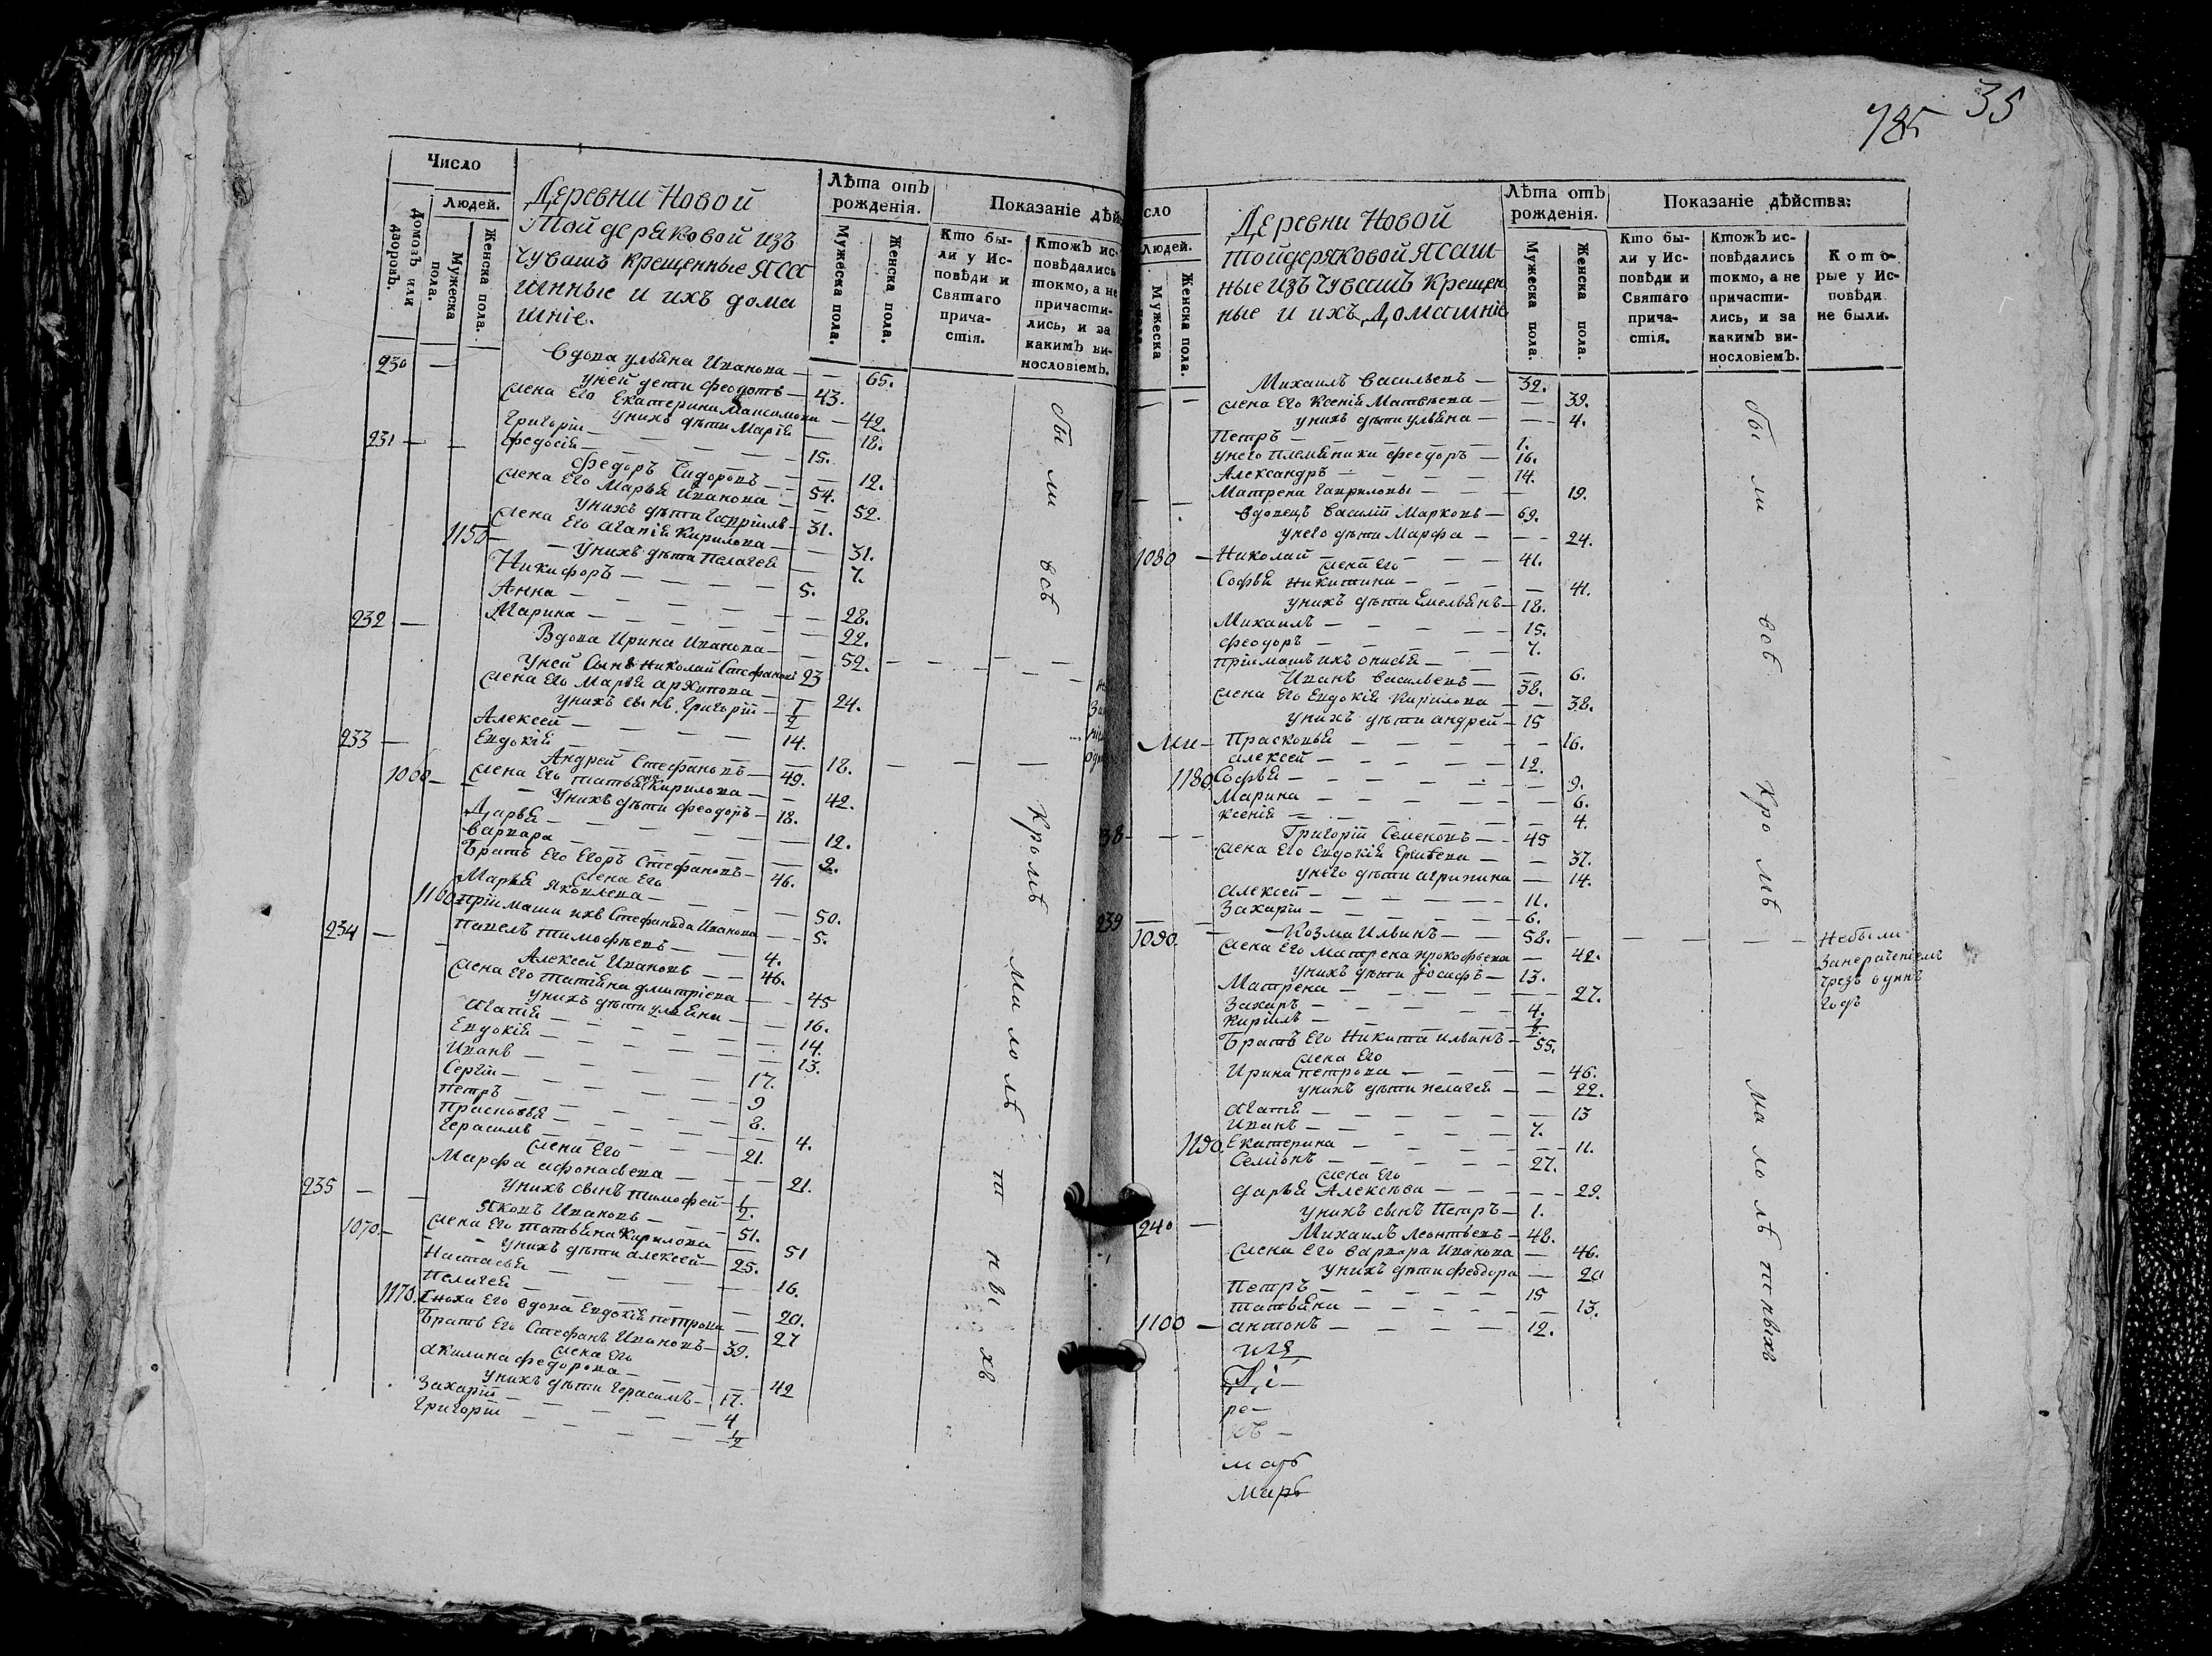 Число
Людей.
Домовъ или дворовъ.
Мужеска пола.
Женска пола.
Деревни Новой
Тойдеряковой изъ
Чувашъ крещенные Яса
шнные и ихъ дома
шніе.
Лѣта отъ рожденія.
Мужеска пола.
Женска пола.
Показаніе дѣй
Кто были у Исповѣди и Святаго причастія.
Ктожъ исповѣдались токмо, а не причастились, и за какимъ винословіемъ.
230 — Вдова ульяна Иванова — — 65.
уней дети Феодотъ — 43.
Жена Его Екатерина Максимова — 42.
унихъ дѣти Марія — 18.
Григорій — 15.
Федосія — 12.
231 — — Федоръ Сидоровъ — 54.
Жена Его Марья Иванова — 52.
унихъ дѣти Гавріилъ — 31.
Жена Его Агапія Кирилова — 31.
1150 — унихъ дѣти Пелагея — 7.
Никифоръ — 5.
Анна — 28.
Марина — 22.
232 — Вдова Ирина Иванова — 52.
Уней Сынъ Николай Стефановъ 23
Жена Его Марья архипова — 24.
унихъ сынъ Григорій — 1/2
Алексей — 14.
Евдокія — 18.
233 — Андрей Стефановъ — 49.
1060 — Жена Его татьяна Кирилова — 42.
Унихъ дѣти Феодоръ — 18.
Дарья — 12.
Варвара — 9.
Братъ Его Егоръ Стефановъ — 46.
Жена Его
Марья Яковлева — 50.
1160 Пріимаши ихъ Стефанида Иванова — 5.
Павелъ тимофѣевъ — 4.
234 — Алексей Ивановъ — 46.
Жена Его татіяна дмитріева — 45
унихъ дѣти ульяна — 16.
Агапія — 14.
Евдокія — 13.
Иванъ — 17.
Сергій — 9
Петръ — 8.
Прасковья — 4.
Герасимъ — 21.
Жена Его
Марфа афонасьева — 21.
унихъ сынъ тимофей — 1/2.
235 — — Яковъ Ивановъ — 51.
1070 — Жена Его татьяна Кирилова — 51
унихъ дѣти алексей — 25.
Настасья — 16.
Пелагея — 20.
1170. Сноха Его вдова Евдокія петрова — 27
Братъ Его Стефанъ Ивановъ — 39.
Жена Его
акилина федорова — 42
унихъ дѣти Герасимъ — 17.
Захарій — 4
Григорій — 1/2
бы ли всѣ Кромѣ ма ло лѣ т н ы хъ
785 35
сло
Людей.
Мужеска
Женска пола.
Деревни Новой
тойдеряковой ясаш
ные изъ Чувашъ Крещен
ные и ихъ Домашніе
Лѣта отъ рожденія.
Мужеска пола.
Женска пола.
Показаніе дѣйства:
Кто были у Исповѣди и Святаго причастія.
Ктожъ исповѣдались токмо, а не причастились, и за какимъ винословіемъ.
Которые у Исповѣди не были.
Михаилъ Васильевъ — 32.
Жена Его Ксенія Матвѣева — 39.
унихъ дѣти ульяна — 4.
Петръ — 1.
унего племянники феодоръ — 16.
Александръ — 14.
Матрена Гавриловы — 19.
Вдовецъ Василій Марковъ — 69.
унего дѣти Марфа — 24.
1080 — Николай — 41.
Жена Его
Софья никитина — 41.
унихъ дѣти Емельянъ — 18.
Михаилъ — 15.
Феодоръ — 7.
пріимашъ ихъ онисья — 6.
Иванъ Васильевъ — 38.
Жена Его Евдокія Кирилова — 38.
унихъ дѣти андрей — 15
Прасковья — 16.
алексей — 12.
1180 Софья — 9.
Марина — 6.
Ксенія — 4.
38 — — — Григорій Семеновъ — 45
Жена Его Евдокія — 37.
унего дѣти агрипина — 14.
алексей — 11.
Захарій — 6.
239 — Козма Ильинъ — 58. — — — — Небыли
1090. Жена Его матрена прокофьева — 42. Занерачениемъ
унихъ дѣти Іосифъ — 13. Чрезъ одинъ
Матрена — 27. Годъ
Захаръ — 4.
Кирилъ — 1/2.
Братъ Его Никита ильинъ — 55.
Жена Его
Ирина петрова — 46.
унихъ дѣти пелагея — 22.
Агапія — 13
Иванъ — 7.
1190. Екатерина — 11.
Семіонъ — 27.
Жена Его
Дарья Алексѣева — 29.
унихъ сынъ Петръ — 1.
240 — Михаилъ Леонтьевъ — 48.
Жена Его варвара Иванова — 46.
унихъ дѣти феодора — 20
Петръ — 15
татьяна — 13.
1100 — антонъ — 12.
ре —
бы ли всѣ Кро мѣ ма ло лѣ тныхъ